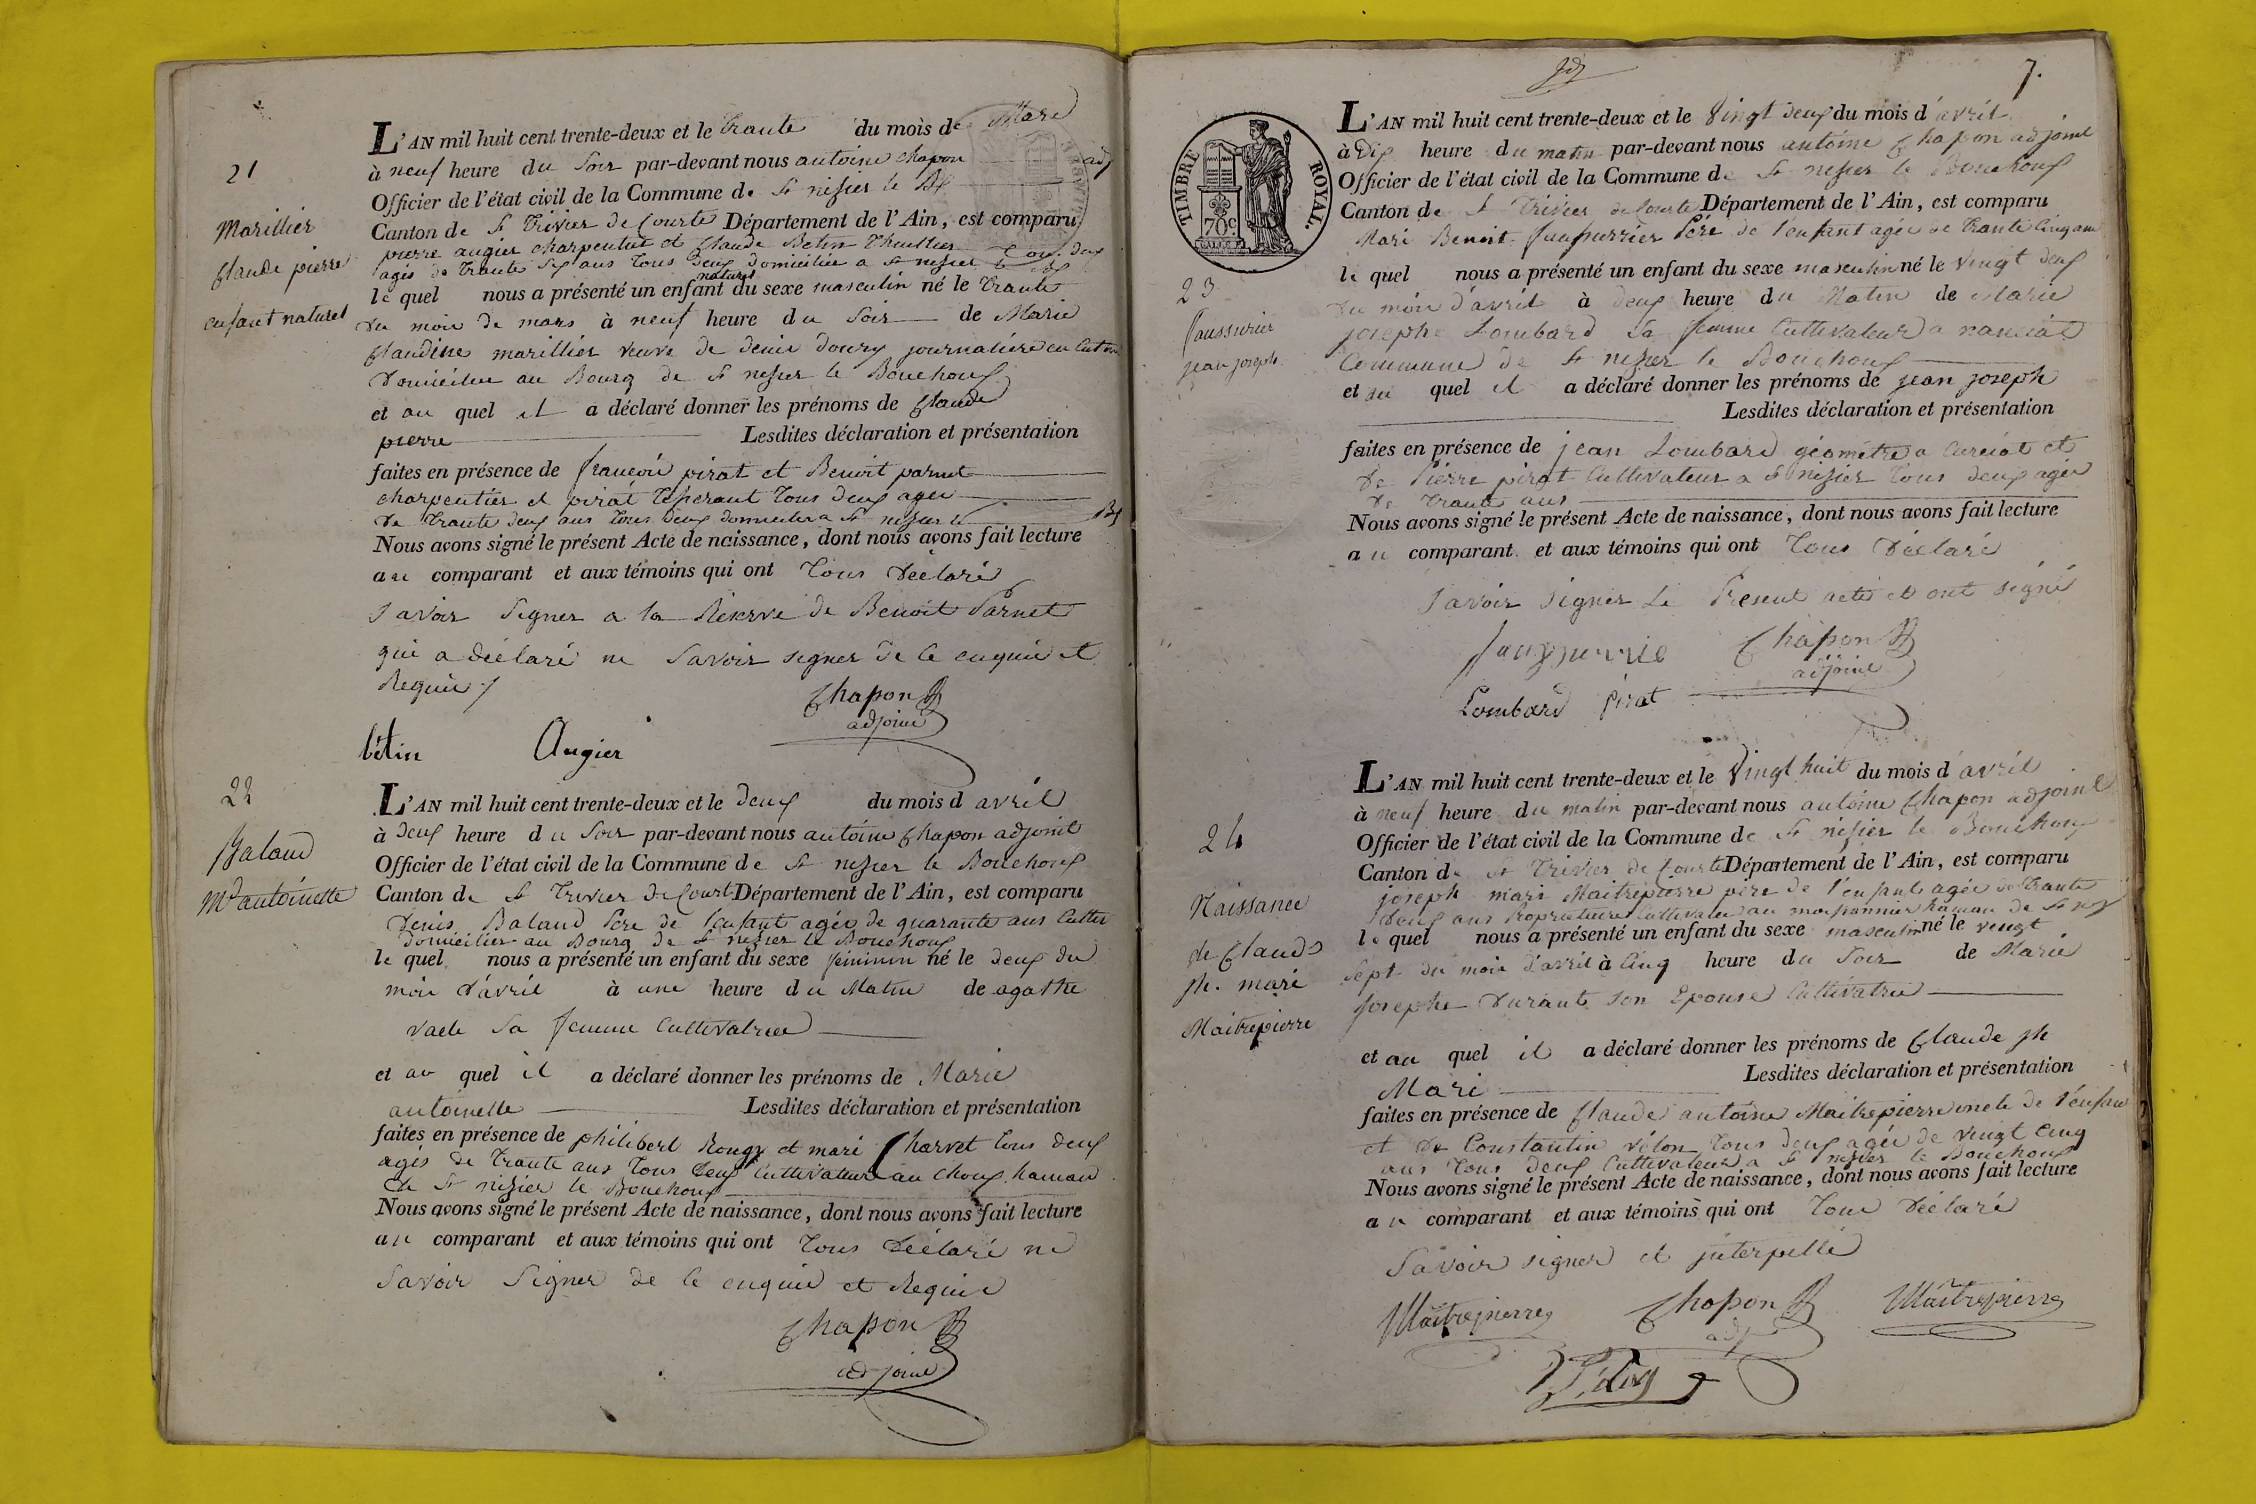 21
Marillier
Claude pierre
enfant naturel
L'AN mil huit cent trente-deux et le trante du mois de Mars
à neuf heure du Soir par-devant nous antoine Chapon adj
Officier de l'état civil de la Commune de St nizier le Bx
Canton de St Trivier de Courte Département de l'Ain, est comparu
pierre augier charpentier et Claude Betin Thuillier tous deux
agés de trante six ans tous deux domicilies a St nizier le Bx
le quel nous a présenté un enfant naturel du sexe masculin né le trante
du mois de mars à neuf heure du Soir de Marie
Claudine marillier veuve de denis doury journalière
Domiciliee au Bourg de St nizier le Bouchoux
et au quel il a déclaré donner les prénoms de Claude
pierre Lesdites déclaration et présentation
faites en présence de francois pirat et Benoit parnet
charpentier et pirat tous deux ages
De trante deux ans tous deux domicilies a St nizier le Bx
Nous avons signé le présent Acte de naissance, dont nous avons fait lecture
au comparant et aux témoins qui ont tous Déclaré
Savoir Signer a la Réserve de Benoit Parnet
qui a déclaré ne Savoir signer de ce enquis et
Requis
Chapon
adjoint
bétin Augier
22
Baland
Me antoinette
L'AN mil huit cent trente-deux et le deux du mois d avril
à deux heure du Soir par-devant nous antoine Chapon adjoint
Officier de l'état civil de la Commune de St nizier le Bouchoux
Canton de St Trivier de Court Département de l'Ain, est comparu
Denis Baland Père de l'enfant agée de quarante ans Culter
domicilier au Bourg de St nizier le Bouchoux
le quel nous a présenté un enfant du sexe féminin né le deux du
mois d'avril à une heure du Matin de agathe
sa femme Cultivatrice
et au quel il a déclaré donner les prénoms de Marie
antoinette Lesdites déclaration et présentation
faites en présence de philibert Rongy et mari Charvet tous deux
agés de trante ans tous deux Cultivateur au Choux hamau
de St nizier le Bouchoux
Nous avons signé le présent Acte de naissance, dont nous avons fait lecture
au comparant et aux témoins qui ont tous Déclaré ne
Savoir Signer de ce enquis et Requis
Chapon
adjoint
7.
TIMBRE ROYAL
70c.
23
Jean joseph
L'AN mil huit cent trente-deux et le Vingt deux du mois d'avril
à Dix heure du matin par-devant nous antoine Chapon adjoint
Officier de l'état civil de la Commune de St nizier le Bouchoux
Canton de St Trivier de Courte Département de l'Ain, est comparu
Mari Benoit Père de l'enfant agée de trante Cinq ans
le quel nous a présenté un enfant du sexe masculin né le vingt deux
du mois d'avril à deux heure du Matin de Marie
josephe Lombard Sa femme Cultivateur a nanciat
Commune de St nizier le Bouchoux
et au quel il a déclaré donner les prénoms de jean joseph
Lesdites déclaration et présentation
faites en présence de jean Lombard géomètre a Curciat et
De Pierre pirat Cultivateur a St nizier tous deux agée
de trante ans
Nous avons signé le présent Acte de naissance, dont nous avons fait lecture
au comparant et aux témoins qui ont tous Déclaré
Savoir signer Le Present acte et ont signé
Chapon
adjoint
Lombard Pirat
24
Naissance
de Claude
jh. mari
Maitrepierre
L'AN mil huit cent trente-deux et le Vingt huit du mois d'avril
à neuf heure du matin par-devant nous antoine Chapon adjoint
Officier de l'état civil de la Commune de St nizier le Bouchoux
Canton de St Trivier de Courte Département de l'Ain, est comparu
joseph mari Maitrepierre père de l'enfant agée de trante
deux ans Propriétaire Cultivateur au hamau de St niz
le quel nous a présenté un enfant du sexe masculin né le vingt
Sept du mois d'avril à Cinq heure du Soir de Marie
Josephe Durante son Epouse Cultivatrice
et au quel il a déclaré donner les prénoms de Claude jh
Mari Lesdites déclaration et présentation
faites en présence de Claude antoine Maitrepierre oncle de l'enfan
et De Constantin vélon tous deux agée de vingt Cinq
ans tous deux Cultivateur a St nizier le Bouchoux
Nous avons signé le présent Acte de naissance, dont nous avons fait lecture
au comparant et aux témoins qui ont tous Déclaré
Savoir signer et interpellé
Maitrepierre Chapon Maitrepierre
adj